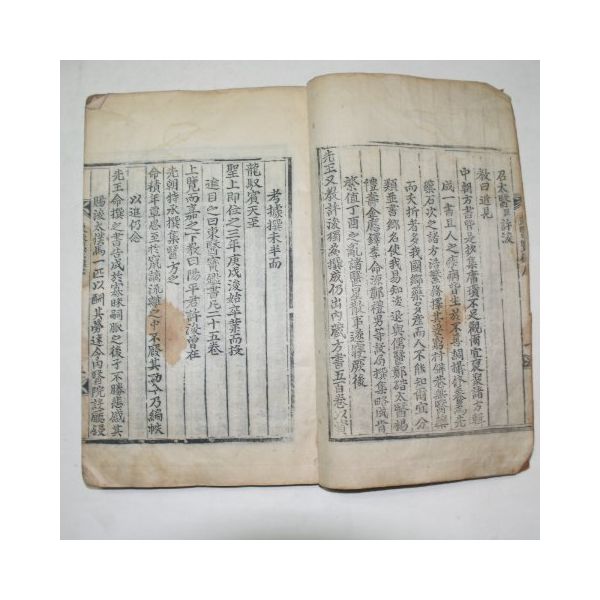 召太醫臣許浚
教曰近見
中朝方書皆是抄集庸瑣不足觀爾宜裒聚諸方輯
成一書且人之疾病皆生於不善調攝修養爲先
藥石次之諸方浩繁務擇其要窮村僻巷無醫藥
而夭折者多我國鄉藥多產而人不能知爾宜分
類並書鄉名使民易知浚退與儒醫鄭碏太醫楊
禮壽金應鐸李命源鄭禮男等設局撰集略成肯
綮值丁酉之亂諸醫星散事遂寢厥後
先王又教許浚獨爲撰成仍出內藏方書五百卷以資
考據撰未半而
龍馭賓天至
聖上即位之三年庚戌浚始卒業而投
進目之曰東醫寶鑑書凡二十五卷
上覽而嘉之下教曰陽平君許浚曾在
先朝特承撰集醫方之
命積年覃思至於竄謫流離之中不廢其功今乃編帙
以進仍念
先王命撰之書告成於寡昧嗣服之後予不勝悲感其
賜浚太僕馬一匹以酬其勞速令內醫院設廳鋟